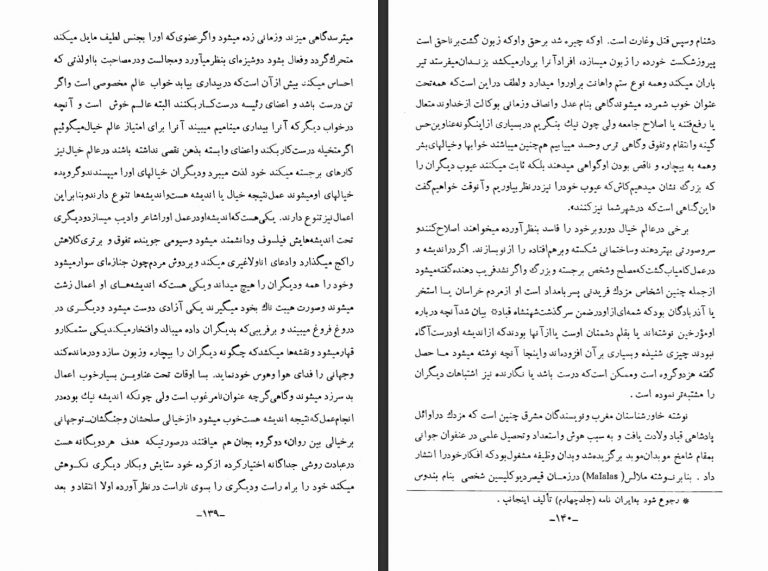 میترسدگاهی میزند وزمانی زده میشود واگر عضوی‌که اورا بجنس لطیف مایل میکند
متحرک‌گردد وفعال بشود دوشیزه‌ای بنظرمیآورد ومجالست ودرمصاحبت بااولذتی که
احساس میکند بیش از آن است‌که دربیداری بیابد خواب عالم مخصوصی است واگر
تن درست باشد و اعضای رئیسه درست‌کار بکنند البته عالم خوش است و آنچه
درخواب دیگرکه آنرا بیداری مینامیم میبیند آنرا برای امتیاز عالم خیال‌میگوئیم
اگرمتخیله درست‌کاربکند واعضای وابسته بذهن نقصی نداشته باشند درعالم خیال‌نیز
کارهای برجسته میکند خود لذت میبرد ودیگران خیالهای اورا میپسندندوگرویده
خیالهای اومیشوند عمل‌نتیجه خیال یا اندیشه هست‌واندیشه‌ها تنوع دارندوبنابراین
اعمال‌نیزتنوع دارند. یکی‌هست‌که‌اندیشه‌اودرعمل اوراشاعر وادیب میسازدودیگری
تحت اندیشه‌هایش فیلسوف ودانشمند میشود وسیومی جوینده تفوق و برتری‌کلاهش
راکج میگذارد وادعای اناولاغیری میکند وبردوش مردم‌چون جنازه‌ای سوارمیشود
وخود را همه ودیگران را هیچ میداند ویکی هست‌که اندیشه‌هـای او اعمال زشت
میشوند وصورت هیبت ناک بخود میگیرند یکی آزادی دوست میشود ودیگـری در
دروغ فروغ میبیند و برفریبی‌که بدیگران داده میبالد وافتخارمیکـند،یکی ستمکارو
قهارمیشود ونقشه‌ها میکشدکه چگونه دیگران را بیچاره وزبون سازد ودرمانده‌کند
وجهانی را فدای هوا وهوس خودنماید. بسا اوقات تحت عناویـن بسیارخوب اعمال
بد سرزد میشوند وگاهی‌گرچه عنوان‌نامرغوب است ولی چونکه اندیشه نیك بوده‌در
انجام‌عمل‌که‌نتیجه اندیشه هست‌خوب میشود «ازخیالی صلحشان وجنگشان-توجهانی
برخیالی بین روان» دوگروه بجان هم میافتند درصورتیکه هدف هردویگانه هست
درعبادت روشی جداگانه اختیارکرده ازکرده خود ستایش وبکار دیگری نکـوهش
میکند خود را براه راست ودیگری را بسوی ناراست درنظرآورده اولا انتقاد و بعد
-۱۳۹-
دشنام وسپس قتل وغارت است. اوکه چیره شد برحق واوکه زبون گشت‌برناحق است
پیروزشکست خورده را زبون میسازد، افرادآنرا بردارمیکشد بزنـدان‌میفرستد تیر
باران میکند وهمه نوع ستم واهانت براوروا میدارد ولطف دراین است‌که همه‌تحت
عنوان خوب شمرده میشوندگاهی بنام عدل وانصاف وزمانی بوکالت ازخداوند متعال
یا رفع‌فتنه یا اصلاح جامعه ولی چون نیك بنگریم دربسیاری ازاینگونه‌عناوین‌حس
کینه وانتقام و تفوق وگاهی ترس وحسد مییابیم هم‌چنین میباشند خوابها وخیالهای‌بشر
وهمه به بیچاره و ناقص بودن اوگواهی میدهند بلکه ثابت میکنند عیوب دیگران را
که بزرگ نشان میدهیم‌کاش‌که عیوب خودرا نیزدرنظربیاوریم وآنوقت خواهیم‌گفت
«این‌گناهی است‌که درشهرشما نیزکنند».
برخی درعالم خیال دوروبرخود را فاسد بنظرآورده میخواهند اصلاح‌کنندو
سروصورتی بهتردهند وساختمانی شکسته وبرهم‌افتاده را ازنوبسازند. اگردراندیشه و
درعمل‌کامیاب‌گشت‌که‌مصلح وشخص برجسته و بزرگ واگر نشدفریب دهنده‌گفته‌میشود
ازجمله چنین اشخاص مزدك فریدنی پسربامداد است او ازمردم خراسان یـا استخر
یا آذربادگان بود که شمه‌ای ازاودرضمن سرگذشت‌شهنشاه قباد* بیان شدآنچه درباره
اومؤرخین نوشته‌اند یا بقلم دشمنان اوست یاازآنها بودندکه ازاندیشه اودرست‌آگاه
نبودند چیزی شنیده وبسیاری برآن افزوده‌اند واینجا آنچه نوشته میشود مـا حصل
گفته هردوگروه است وممکن است‌که درست باشد یا نگارنده نیز اشتباهات دیگران
را مشتبه‌تر نموده است .
نوشته خاورشناسان مغرب ونویسندگان مشرق چنین است که مزدك دراوائل
پادشاهی قباد ولادت یافت و به سبب هوش واستعداد وتحصیل علمی در عنفوان جوانی
بمقام شامخ موبدان‌موبد برگزیده‌شد وبدان وظیفه مشغول‌بودکه افکارخودرا انتشار
داد . بنابرنوشته ملالس(Malalas) درزمـان قیصردیوکلیسین شخصی بنام بندوس
* رجوع شود به‌ایران نامه (جلدچهارم) تألیف اینجانب .
-۱۴۰-